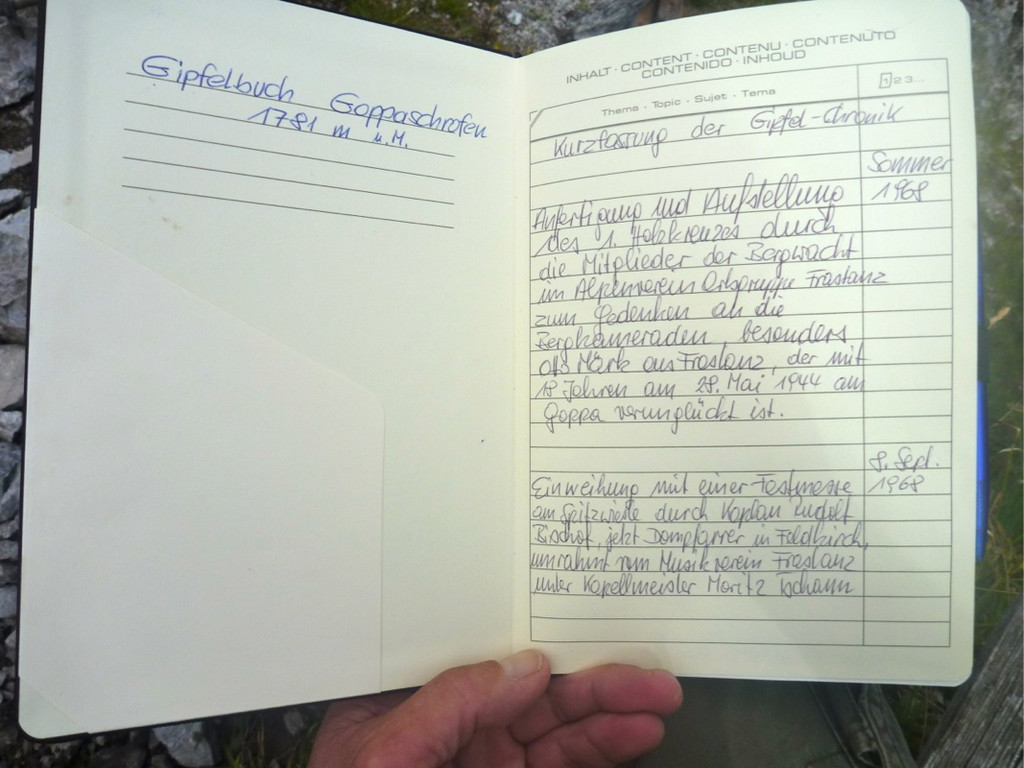 Gipfelbuch Goppaschrofen
1781 m ü.M.
INHALT · CONTENT · CONTENU · CONTENUTO
CONTENIDO · INHOUD
Thema · Topic · Sujet · Tema
1 2 3 ...
Kurzfassung der Gipfel-Chronik
Sommer
Anfertigung und Aufstellung 1968
des 1. Holzkreuzes durch
die Mitglieder der Bergwacht
im Alpenverein Ortsgruppe Frastanz
zum Gedenken an die
Bergkameraden, besonders
Märk aus Frastanz, der mit
18 Jahren am 28. Mai 1944 am
Goppa verunglückt ist.
8. Sept.
Einweihung mit einer Festmesse 1968
am Spitzwiesle durch Kaplan Rudolf
Bischof, jetzt Dompfarrer in Feldkirch,
umrahmt vom Musikverein Frastanz
unter Kapellmeister Moritz Tschann